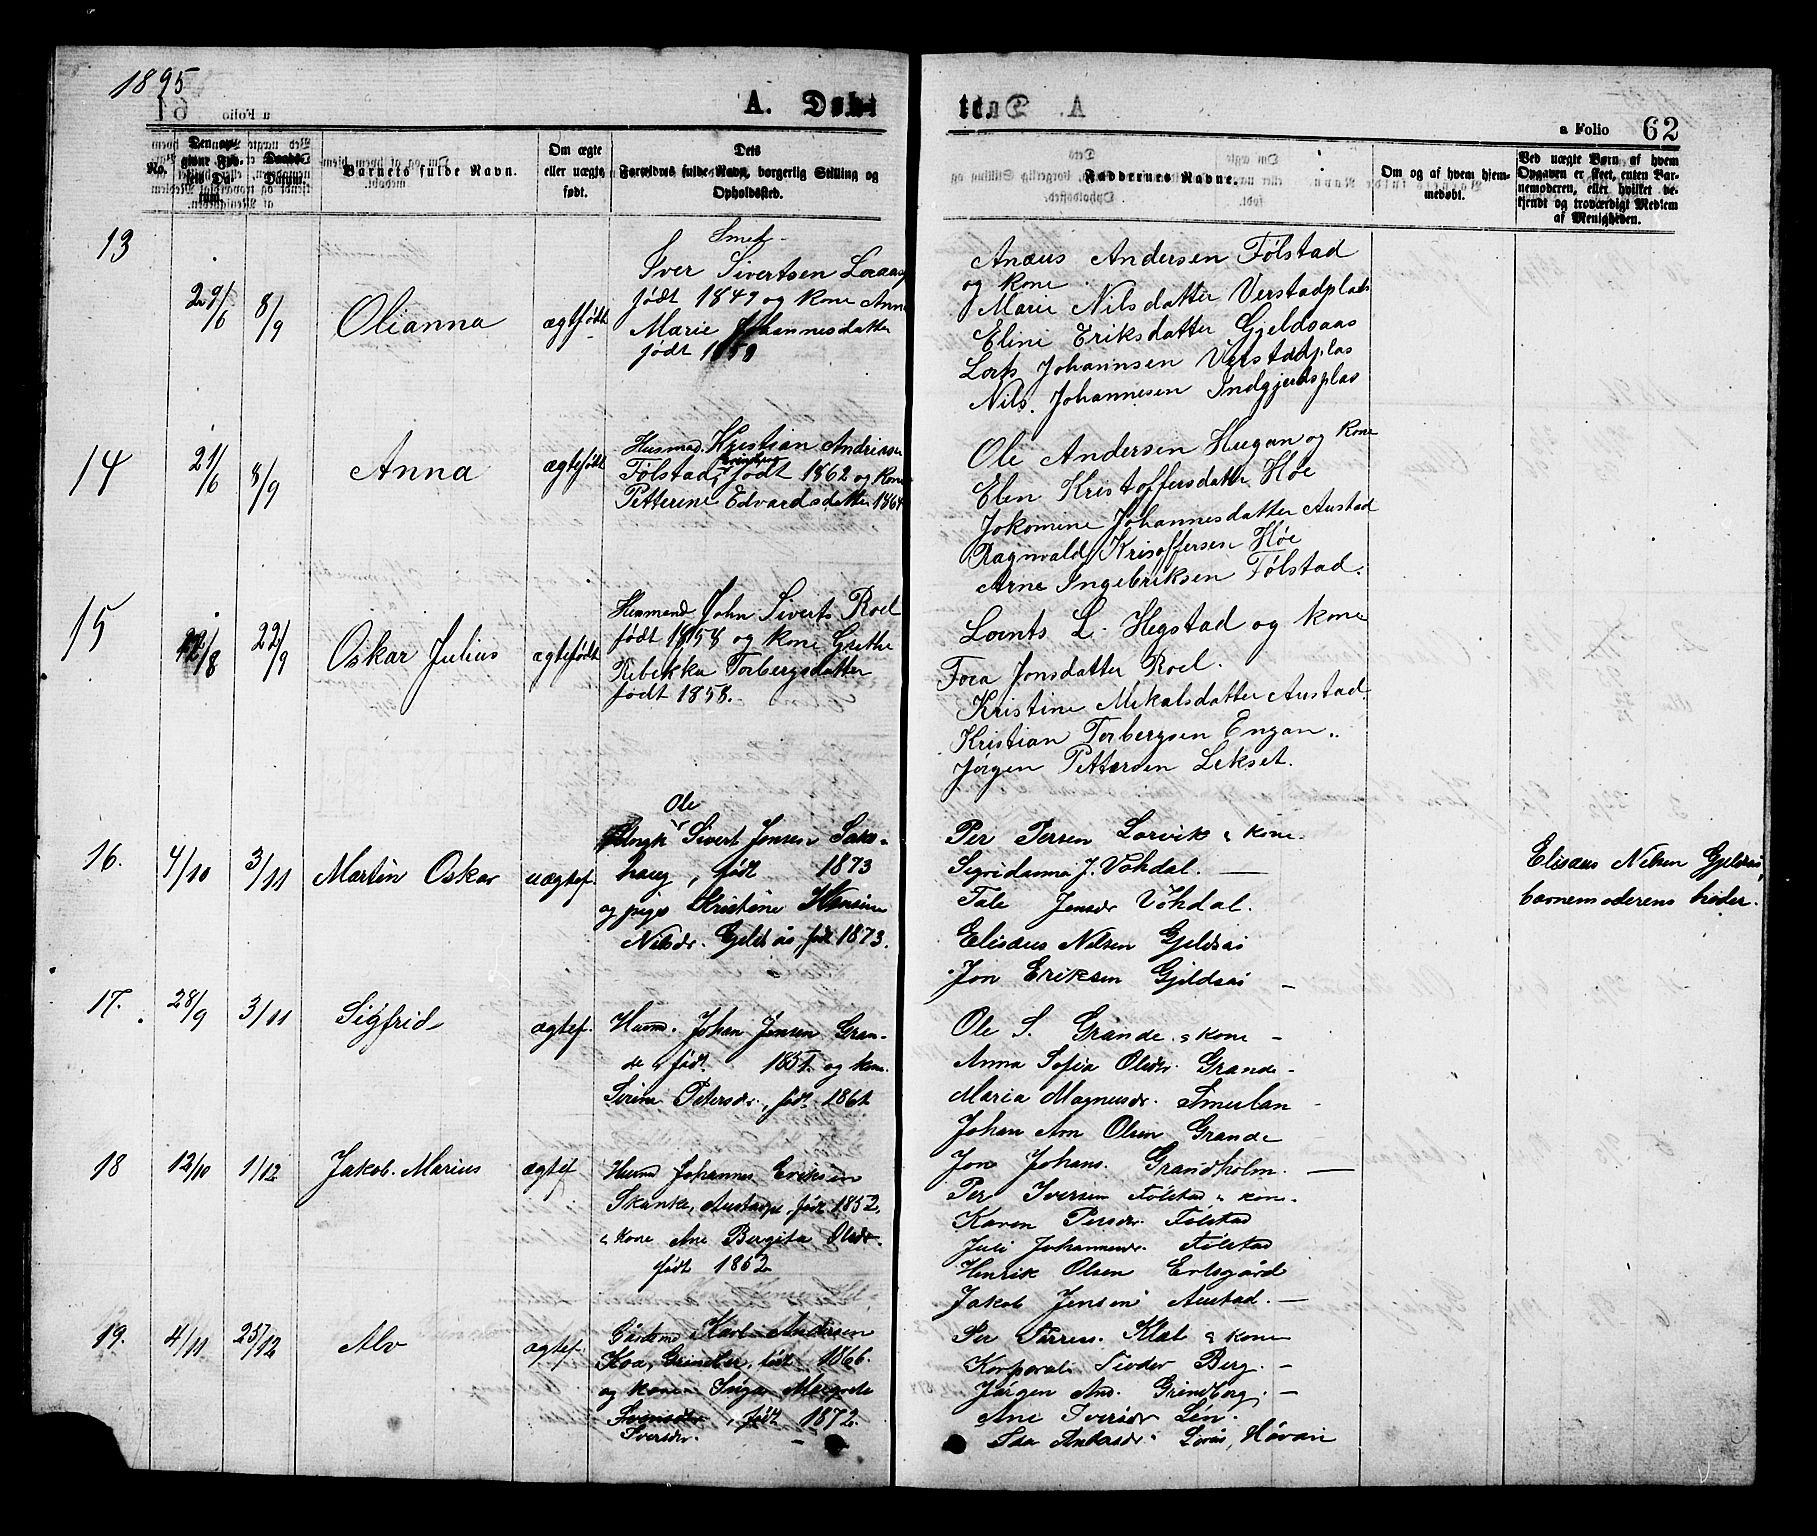 1895
A. Døbt
a Folio 62
No.
Den opgivne Fødsels Datum.
Daabs-Datum.
Barnets fulde Navn.
Om ægte eller uægte født.
Dets Forældres fulde Navn, borgerlig Stilling og Opholdssted.
Faddernes Navne.
Om og af hvem hjemmedøbt.
Ved uægte Børn af hvem Opgaven er skeet, enten Barnemoderen, eller hvilket bekjendt og troværdigt Medlem af Menigheden.
13
29/6
8/9
Olianna
ægtfødt
Smed
Iver Sivertsen Loraas
født 1849 og kone Anne
Marie Johannesdatter
født
Anæus Andersen Følstad
og kone
Marie Nilsdatter Verstadplads
Eline Eriksdatter Gjeldsaas
Johannsen Verstadplas
Nils. Johannesen Indgjerdsplas
14
21/6
8/9
Anna
ægtefødt
Husmad. Kristian Andreasen
Følstad, født 1862 og Kone
Petterine Edvardsdatter 1864
Ole Andersen Hugan og Kone
Elen Kristoffersdatter Høe
Jokomine Johannesdatter Austad
Raginvald Krisoffersen Høe
Arne Ingebriksen Følstad.
15
22/9
Oskar Julius
ægtefødt
Husmand John Siverts Roel
født 1858 og kone Grethe
Rebekka Torbergsdatter
født 1858.
Lornts L. Hegstad og kone
Jonsdatter Roel.
Kristine Mekalsdatter Austad.
Kristian Torbergsen Engan..
Jørgen Pettersen Lekset.
16.
4/10
3/11
Martin Oskar
uægtef.
Ole
Ungk Sivert Jensen Saks-
haug, født 1873
og pige Kristine Hansine
Nilsdr. Gjeldsås, født 1873.
Per Persen Lorvik & kone.
Sigridanna J. Vohdal.
Tale Jensdr Vohdal.
Elisæus Nelsen Gjeldsås
Jon Eriksen Gjeldsås
Elisæus Nelsen Gjeldsås,
barnemoderens broder.
17.
28/9
3/11
Sigfrid
ægtef.
Husmd. Johan Jensen Gran-
de, født 1851. og kone
Sirine Petersdr., født 1861
Ole S. Grande. & kone
Anna Sofia Olsdr. Grande
Maria Magnusdr. Smerlan
Johan Arn Olsen Grande
18
12/10
1/12
Jakob. Marius
ægtef
Husmd Johannes Eriksen
Skanke, Austadpl, født 1852,
& kone Ane Bergita Olsdr.
født 1852
Jon Johans. Grandholm.
Per Iversen Følstad & kone.
Karen Persdr. Følstad
Juli Johannesdr. Følstad
Henrik Olsen Ertsgård
Jakob Jensen Austad.
19.
4/11
25/12
Alv
ægtef.
Gårdmd Karl Andersen
Koa, Grindber, født 1866.
og kone Inga Margrete
, født 1872.
Iversdr.
Per Klæt & kone
Korporal Berg.
Jørgen And. Grindberg.
Ane Iversdr Lén.
Ida Lorås, Høvan